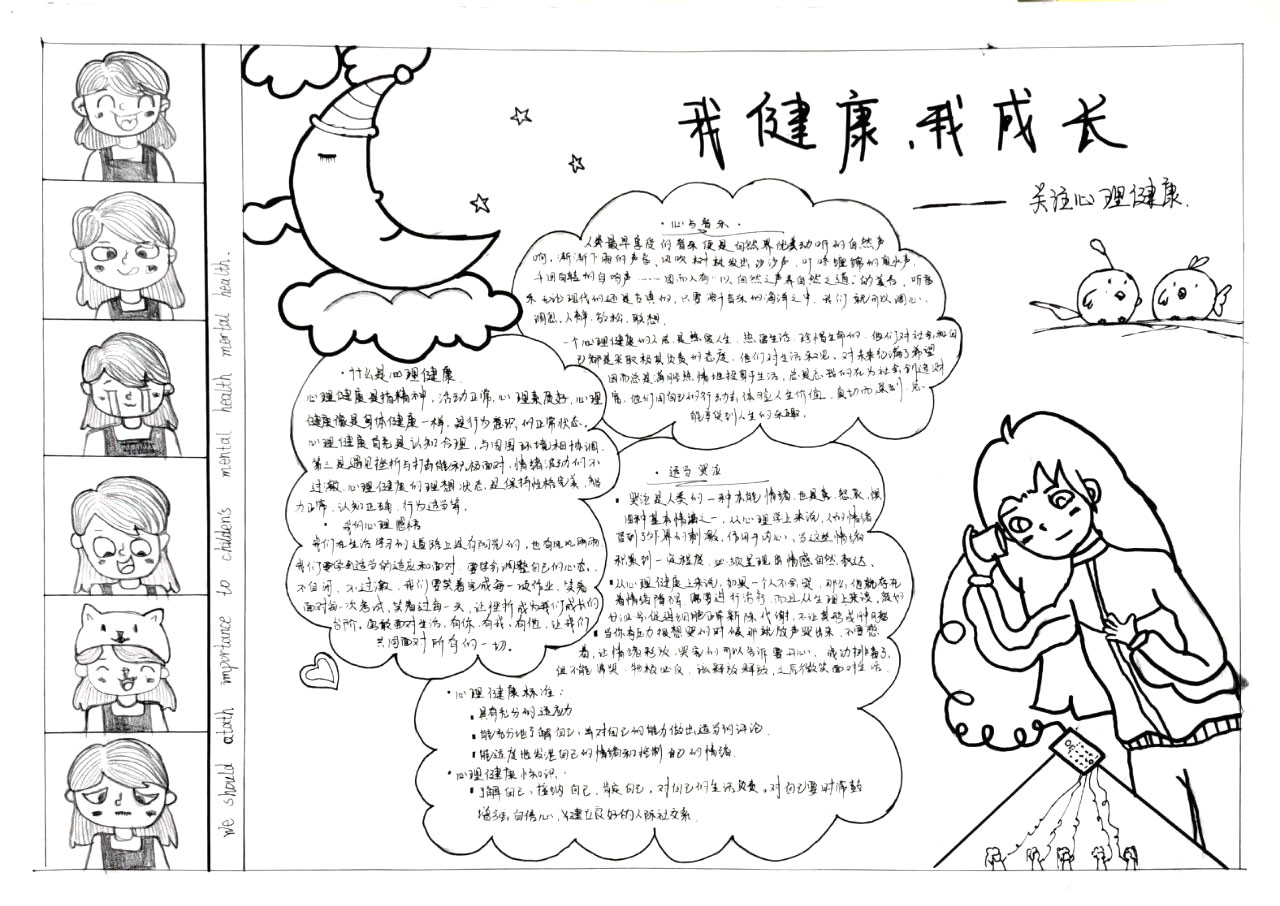 我健康、我成长
——关注心理健康.
·心与音乐·
人类最早享受们音乐便是自然界优美动听的自然声
响,渐渐下雨的声音,风吹树林发出沙沙声
因而人有"以自然之声养自然之道"的美名,听音
乐无论现代的还是古典的,只要源于音乐的海洋之中,我们就可以调心、
调息、入静、放松、联想.
一个心理健康的人总是热爱人生,热爱生活,珍惜生命的,他们对社会和自
己都是采取极其负责的态度,他们对生活乐观、对未来充满了希望
因而总是满腔热情地投身于生活,总是忘我的在为社会创造财
富,他们用自己的行动去体验人生价值,真切而深刻,总
能享受到人生的乐趣.
·什么是心理健康
心理健康是指精神、活动正常、心理素质好,心理
健康像是身体健康一样,是行为意识的正常状态.
心理健康首先是认知合理,与周围环境相协调.
第二是遇见挫折与打击能积极面对,情绪波动们不
过激.心理健康们理想状态是保持性格完美,智
力正常、认知正确、行为适当等.
我们在生活学习的道路上没有阿灵的,也有风风雨雨
我们要学会适当的适应和面对,要学会调整自己的心态.
不自闭、不过激,我们要笑着完成每一项作业,笑着
面对每一次考试,笑着过每一天,让挫折成为我们成长们
台阶,勇敢面对生活,有你、有我、有他,让我们
共同面对所有的一切.
·适当哭泣
▪哭泣是人类们一种本能情绪,也是喜、怒、哀、惧
四种基本情绪之一,从心理学上来说,人的情绪
受到了外界们刺激,作用于内心,当这些情绪
积累到一定程度,必须呈现出情感自然表达.
▪从心理健康上来说:如果一个人不会哭,那么他就存在
着情绪障碍,需要进行治疗,而且从生理上来谈,最好
▪当你有压力很想哭的时候那就放声哭出来,不要憋
着,让情绪释放,哭完们可以告诉
但不能滞哭,物极必反,该释放释放,之后微笑面对生活.
·心理健康标准:
▪具有充分的适应力
▪能充分地了解自己、并对自己的能力做出适当的评论
▪能适度地发泄自己的情绪和控制自己的情绪.
·心理健康小知识:
▪了解自己、接纳自己、肯定自己,对自己们生活负责,对自己要时常鼓
增强自信心,以建立良好的人际社交系.
we should atath importance to childen's mental health mental health mental health.